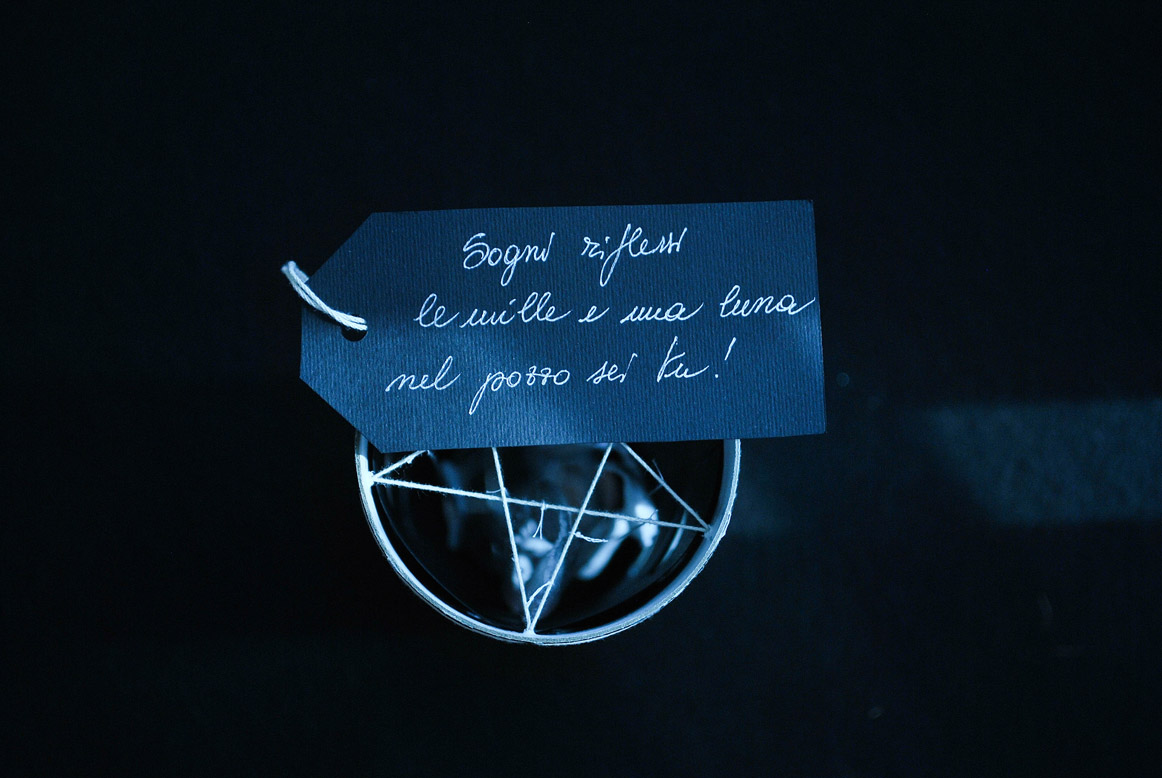 Sogni riflessi
le mille e una luna
nel pozzo sei tu!